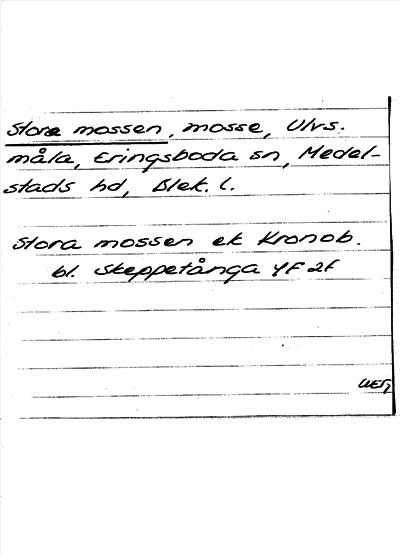 Stora mossen, mosse, Ulvs.
måla, Eringsboda sn, Medel-
stads hd, Blek. l.
Stora mossen ek Kronob.
bl. Skeppetånga 4F 2f